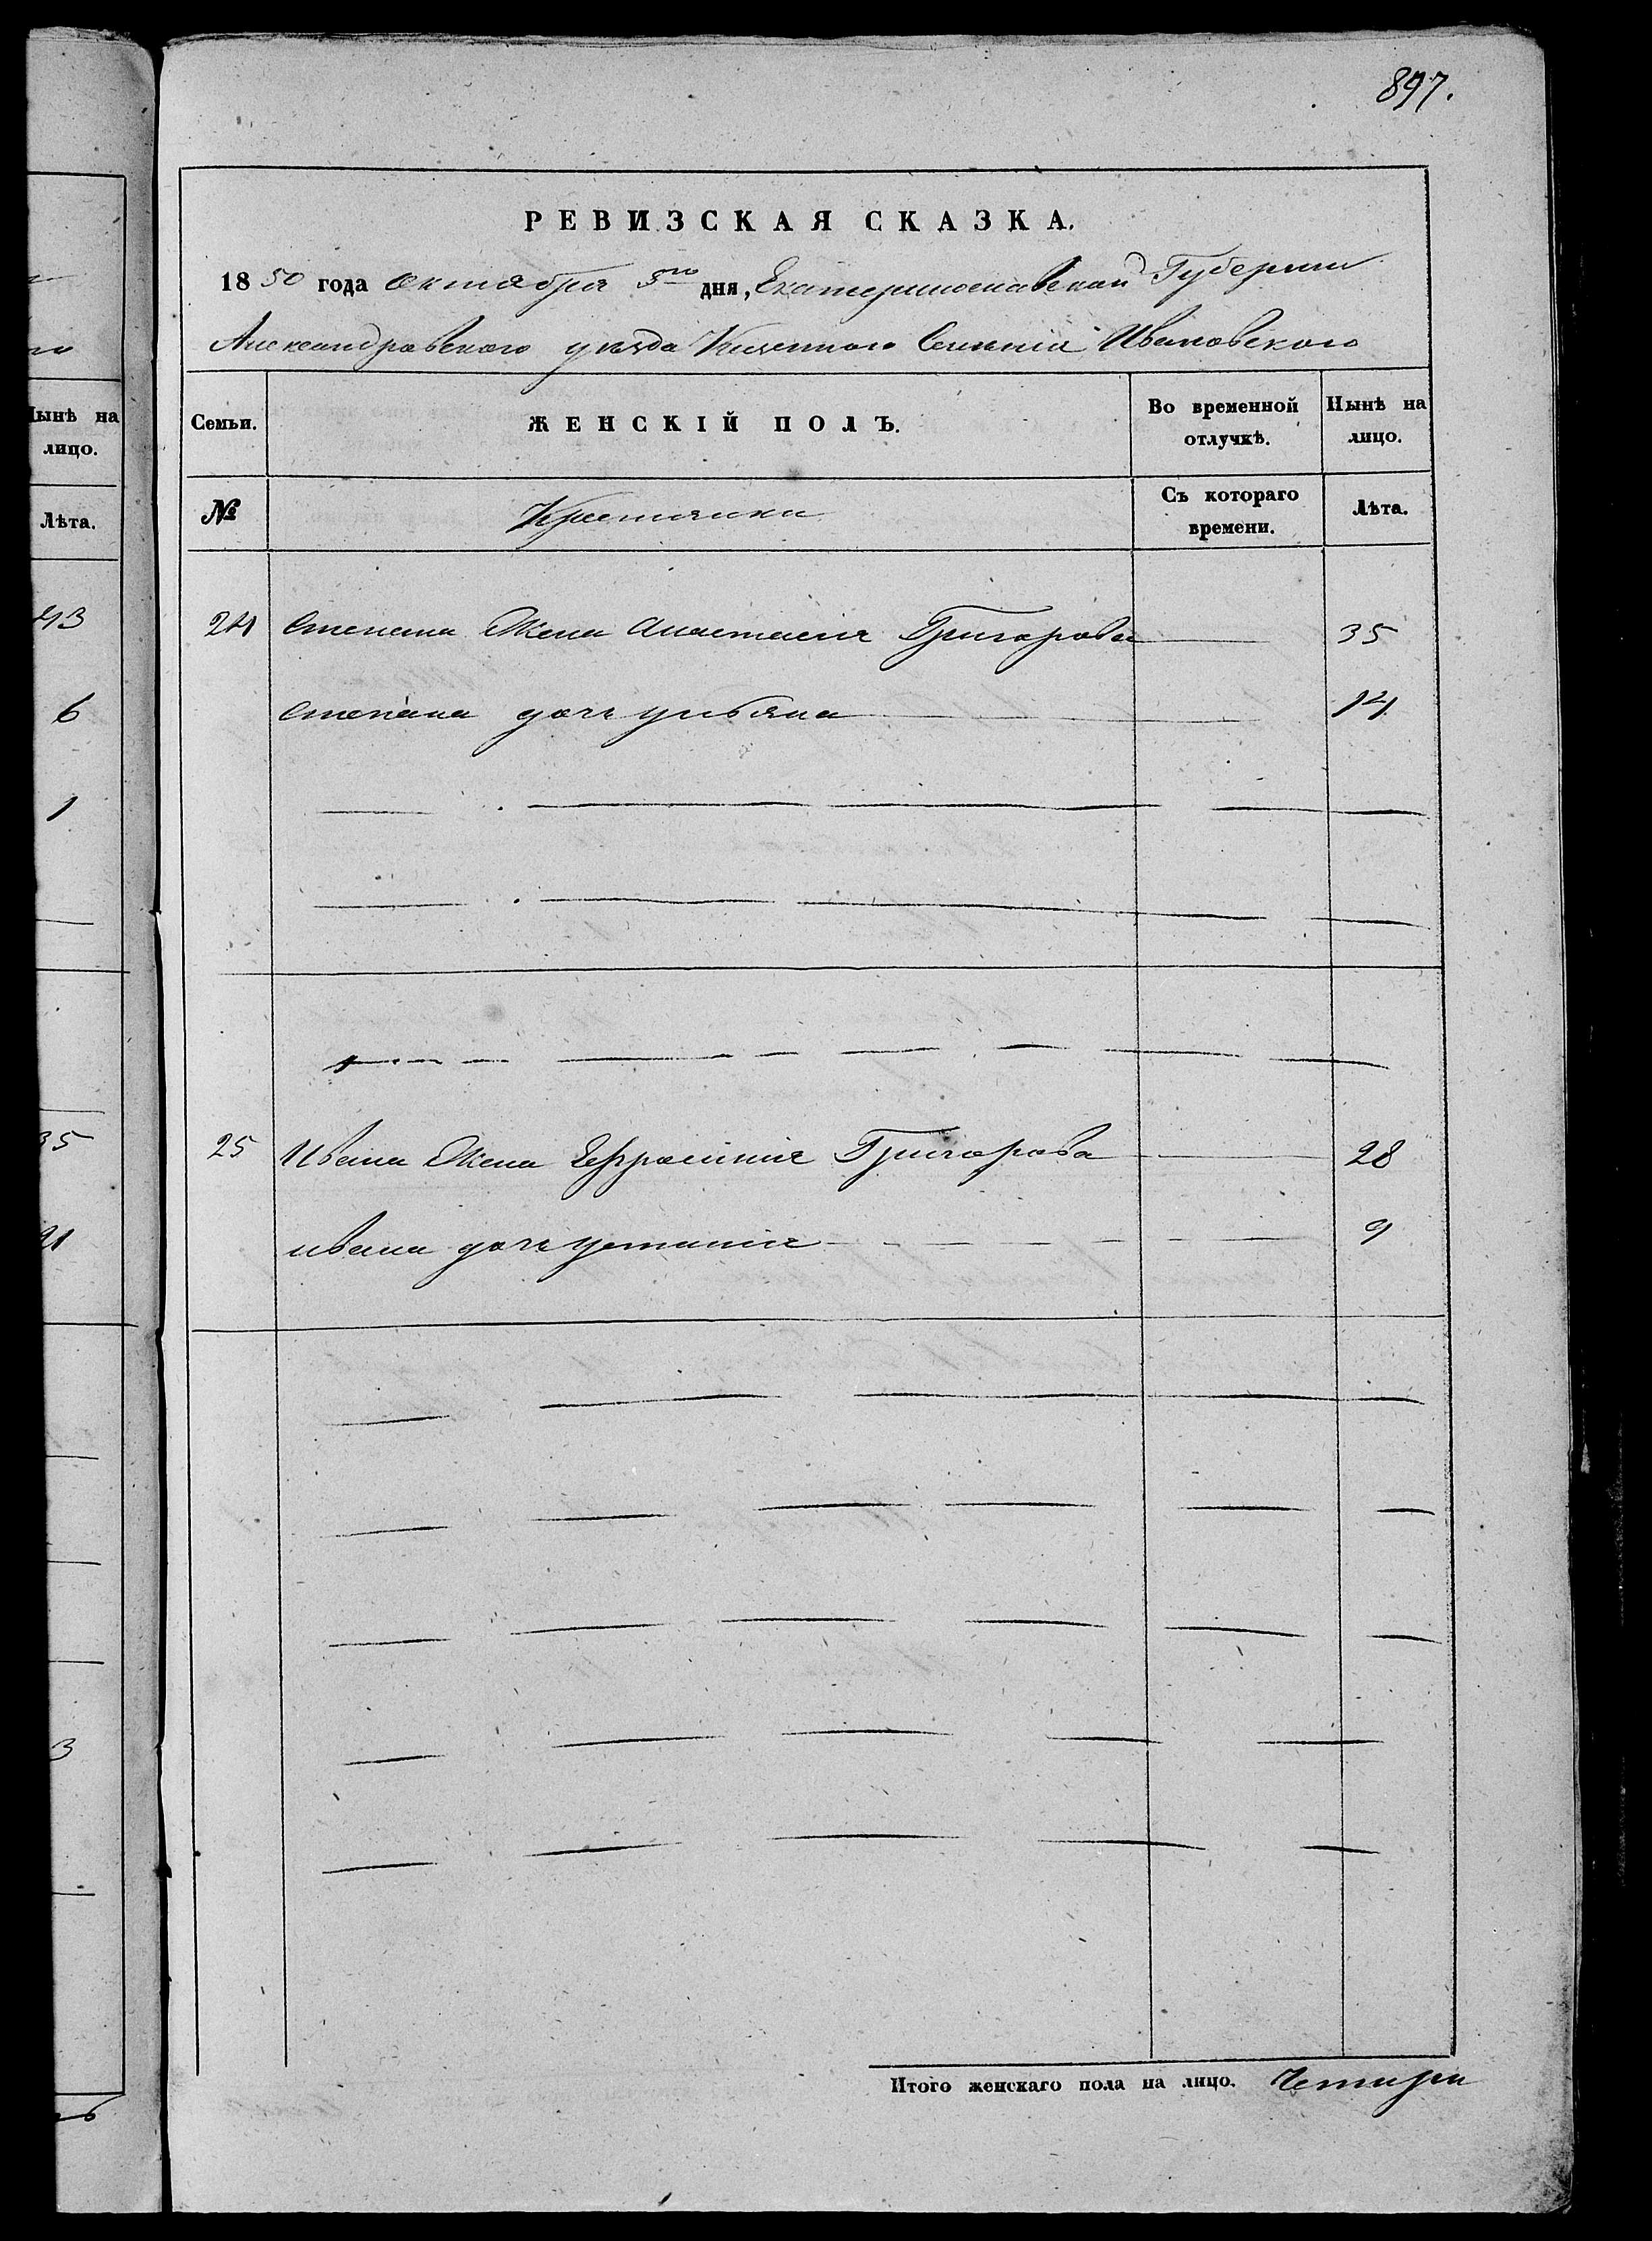 897.
РЕВИЗСКАЯ СКАЗКА.
1850 года Октября 5го дня, Екатеринославской Губернии
Александровского уезда Казенного Селения Ивановского
Семьи. ЖЕНСКІЙ ПОЛЪ. Во временной отлучкѣ. Нынѣ на лицо.
№ Крестянки Съ котораго времени. Лѣта.
24 Степана Жена Анастасія Григорова 35
Степана дочь ульяна 14
25 Ивана Жена Ефросинія Григорова 28
ивана дочь устинія 9
Итого женскаго пола на лицо. Четири
ынѣ на
лицо.
Лѣта.
43
6
1
35
21
3